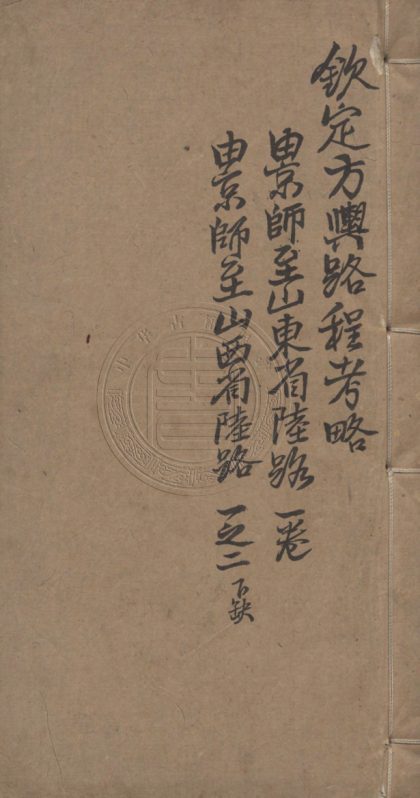 欽定方輿路程考略
由京師至山東省陸路 一卷
由京師至山西省陸路 一之二 下缺